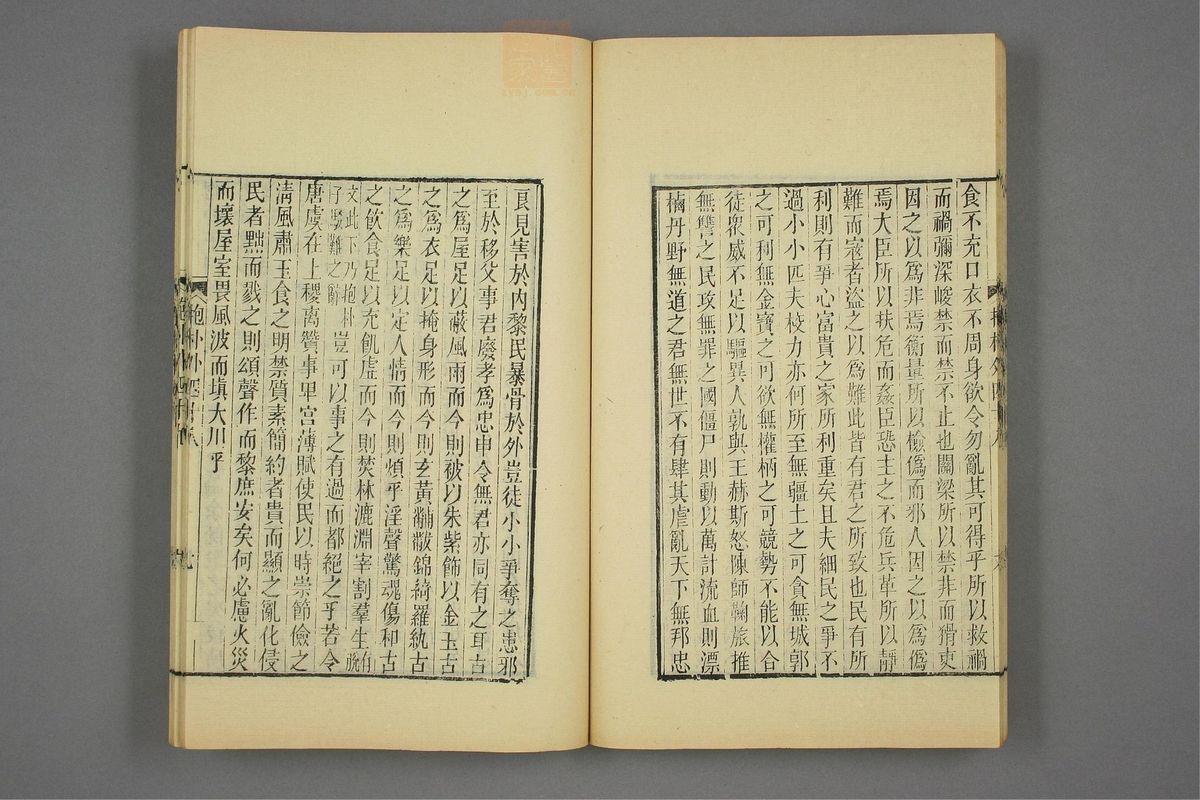 食不充口衣不周身欲令勿亂其可得乎所以救禍
而禍彌深峻禁而禁不止也關梁所以禁非而猾吏
因之以爲非焉衡量所以檢僞而邪人因之以爲僞
焉大臣所以扶危而姦臣恐主之不危兵革所以靜
難而寇者盜之以爲難此皆有君之所致也民有所
利則有爭心富貴之家所利重矣且夫細民之爭不
過小小匹夫校力亦何所至無疆土之可貪無城郭
之可利無金寶之可欲無權柄之可競勢不能以合
徒衆威不足以驅異人孰與王赫斯怒陳師鞠旅推
無讐之民攻無罪之國僵尸則動以萬計流血則漂
櫓丹野無道之君無世不有肆其虐亂天下無邦忠
良見害於内黎民暴骨於外豈徒小小爭奪之患邪
至於移父事君廢孝爲忠申令無君亦同有之耳古
之爲屋足以蔽風雨而今則被以朱紫飾以金玉古
之爲衣足以掩身形而今則玄黃黼黻錦綺羅紈古
之爲樂足以定人情而今則煩乎淫聲驚魂傷和古
之飲食足以充飢虛而今則焚林漉淵宰割羣生有脫
文此下乃抱朴子駁難之辭豈可以事之有過而都絕之乎若令
唐虞在上稷卨贊事卑宮薄賦使民以時崇節儉之
清風肅玉食之明禁質素簡約者貴而顯之亂化侵
民者黜而戮之則頌聲作而黎庶安矣何必慮火災
而壞屋室畏風波而塡大川乎
抱朴外四十八